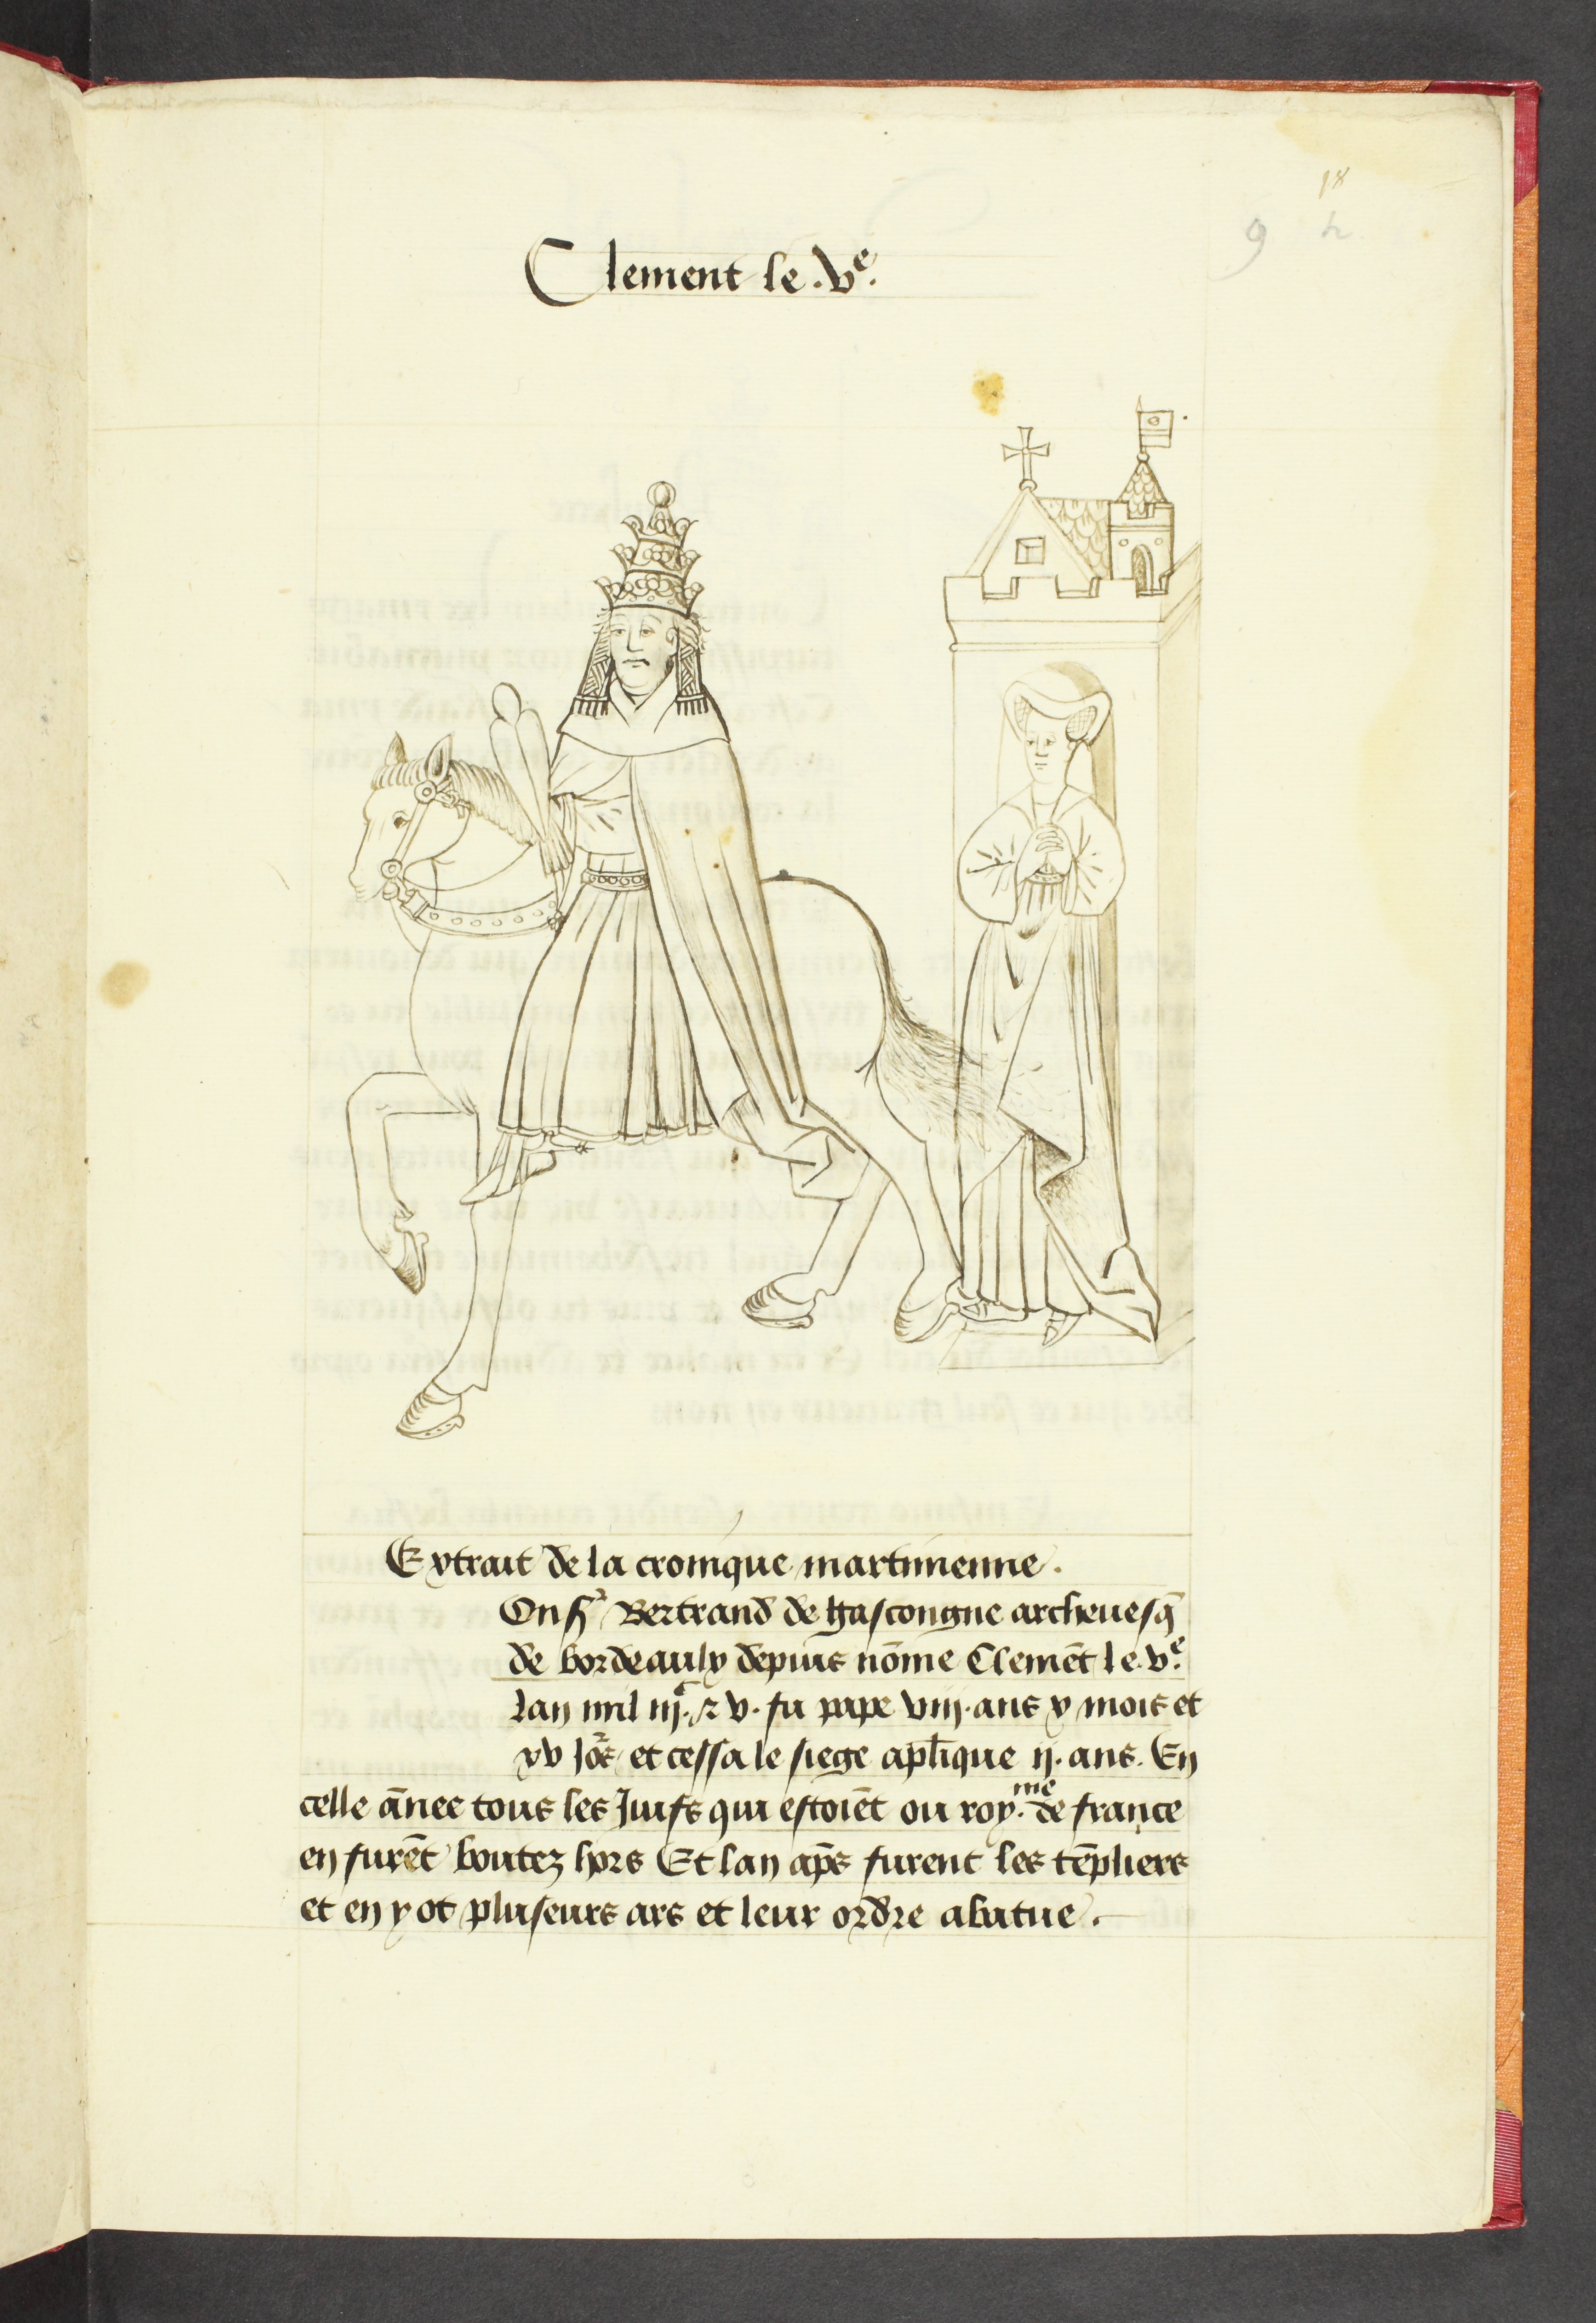 18
9 h
Clement le .Ve.
Extrait de la cronique martinienne.
Onsr Bertrand de gascongne archeuesq̄
de bordeaulx depuis nōme Clemēt le .ve.
lan mil iijc. et v. fu pape viij. ans x mois et
xv Iors et cessa le siege aplique ij. ans. En
celle ānee tous les Juifs qui estoiēt ou roy.me de france
en furēt boutez hors Et lan aps̄ furent les tēpliers
et en y ot pluseurs ars et leur ordre abatue.